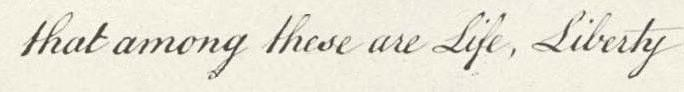 that among these are Life, Liberty